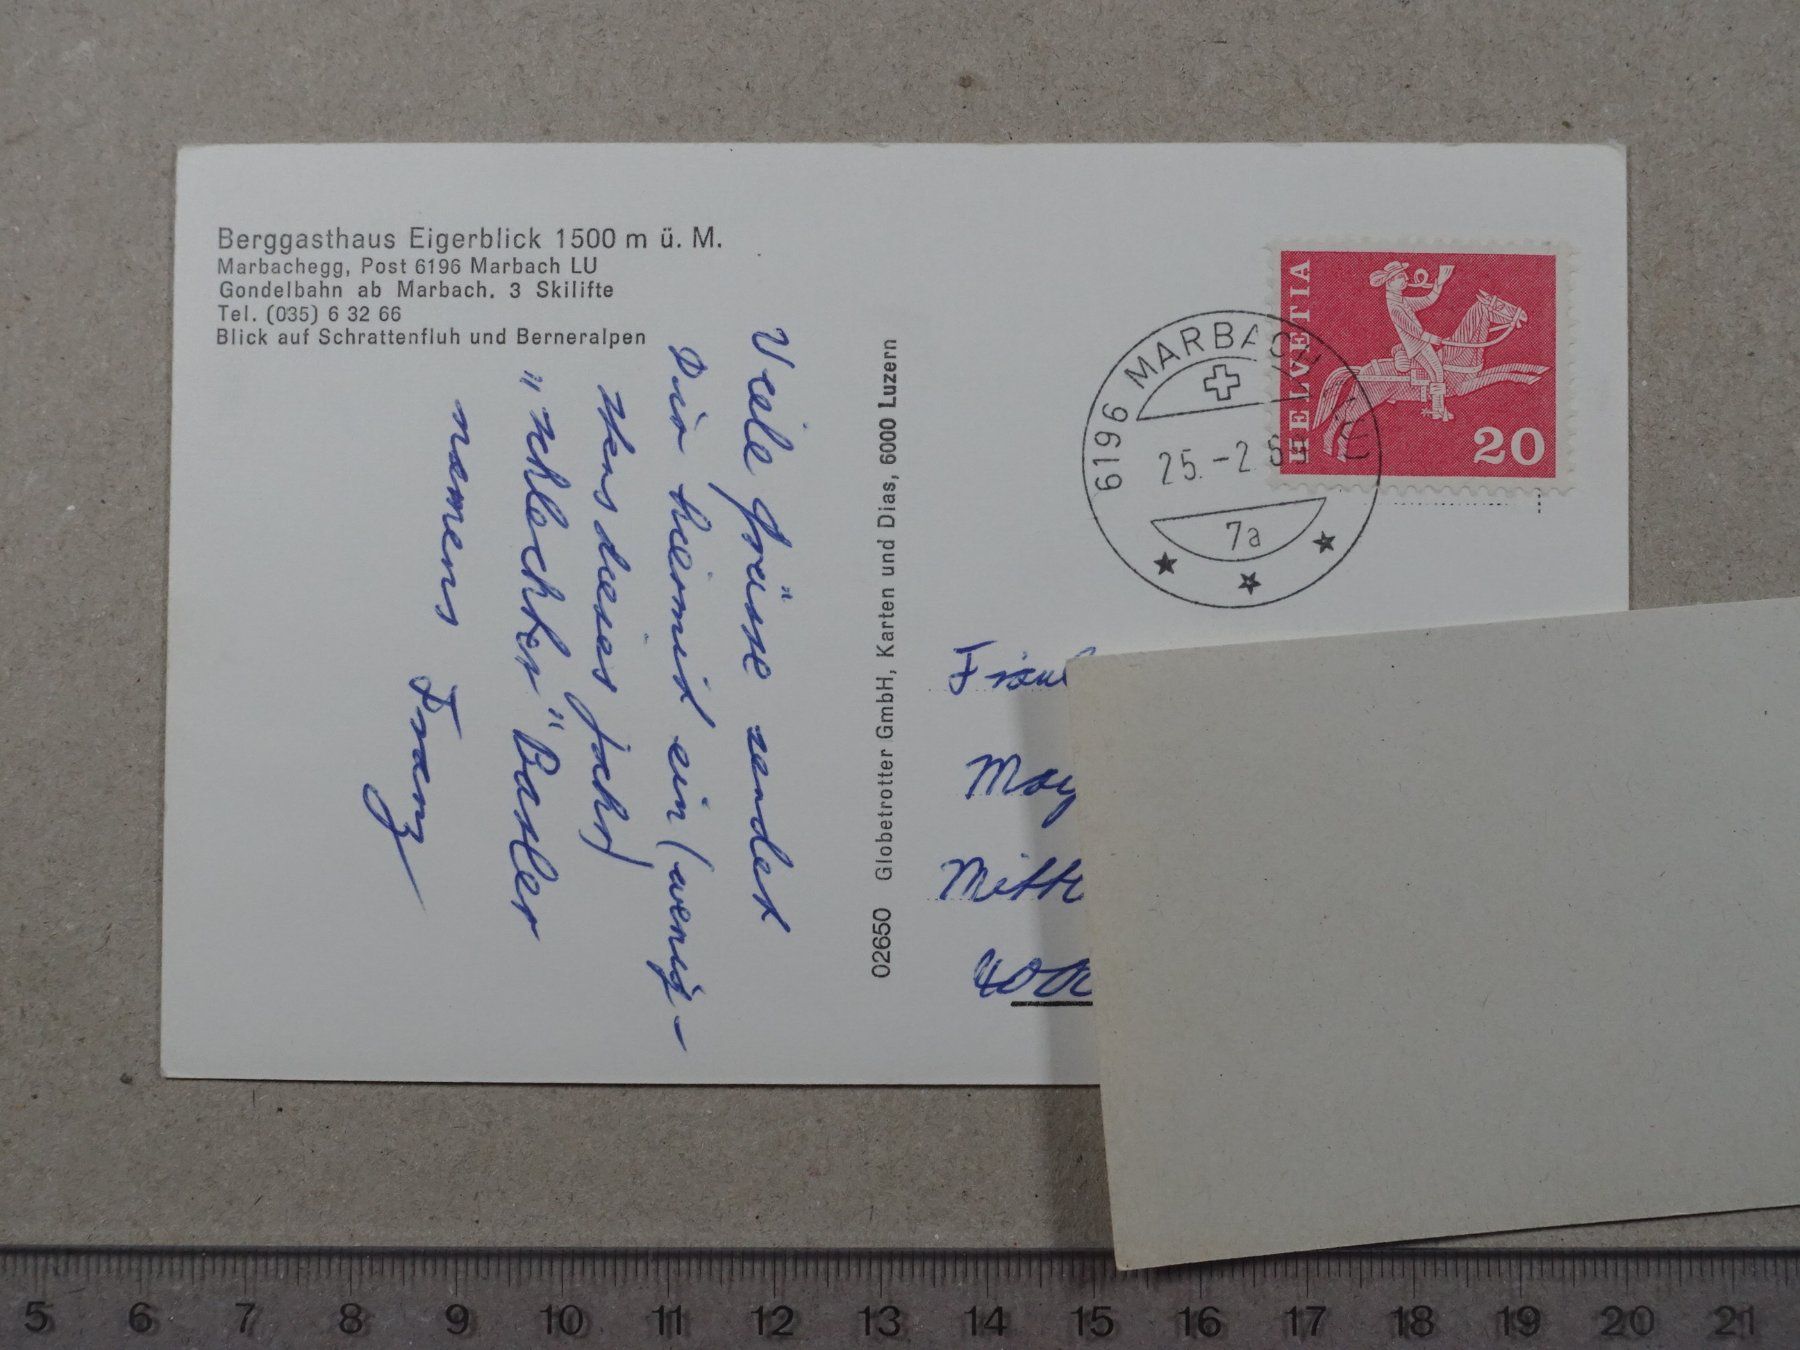 Berggasthaus Eigerblick 1500 m ü. M.
Marbachegg, Post 6196 Marbach LU
Gondelbahn ab Marbach. 3 Skilifte
Tel. (035) 6 32 66
Blick auf Schrattenfluh und Berneralpen
Viele Grüsse sendet
Dir hiermit ein (wenig-
stens dieses Jahr)
"schlechter" Basler
namens Franz
02650 Globetrotter GmbH, Karten und Dias, 6000 Luzern
HELVETIA
20
6196 MARBACH LU
25.-2.69
7a
Fräul
May
Mitt
400
5 6 7 8 9 10 11 12 13 14 15 16 17 18 19 20 21